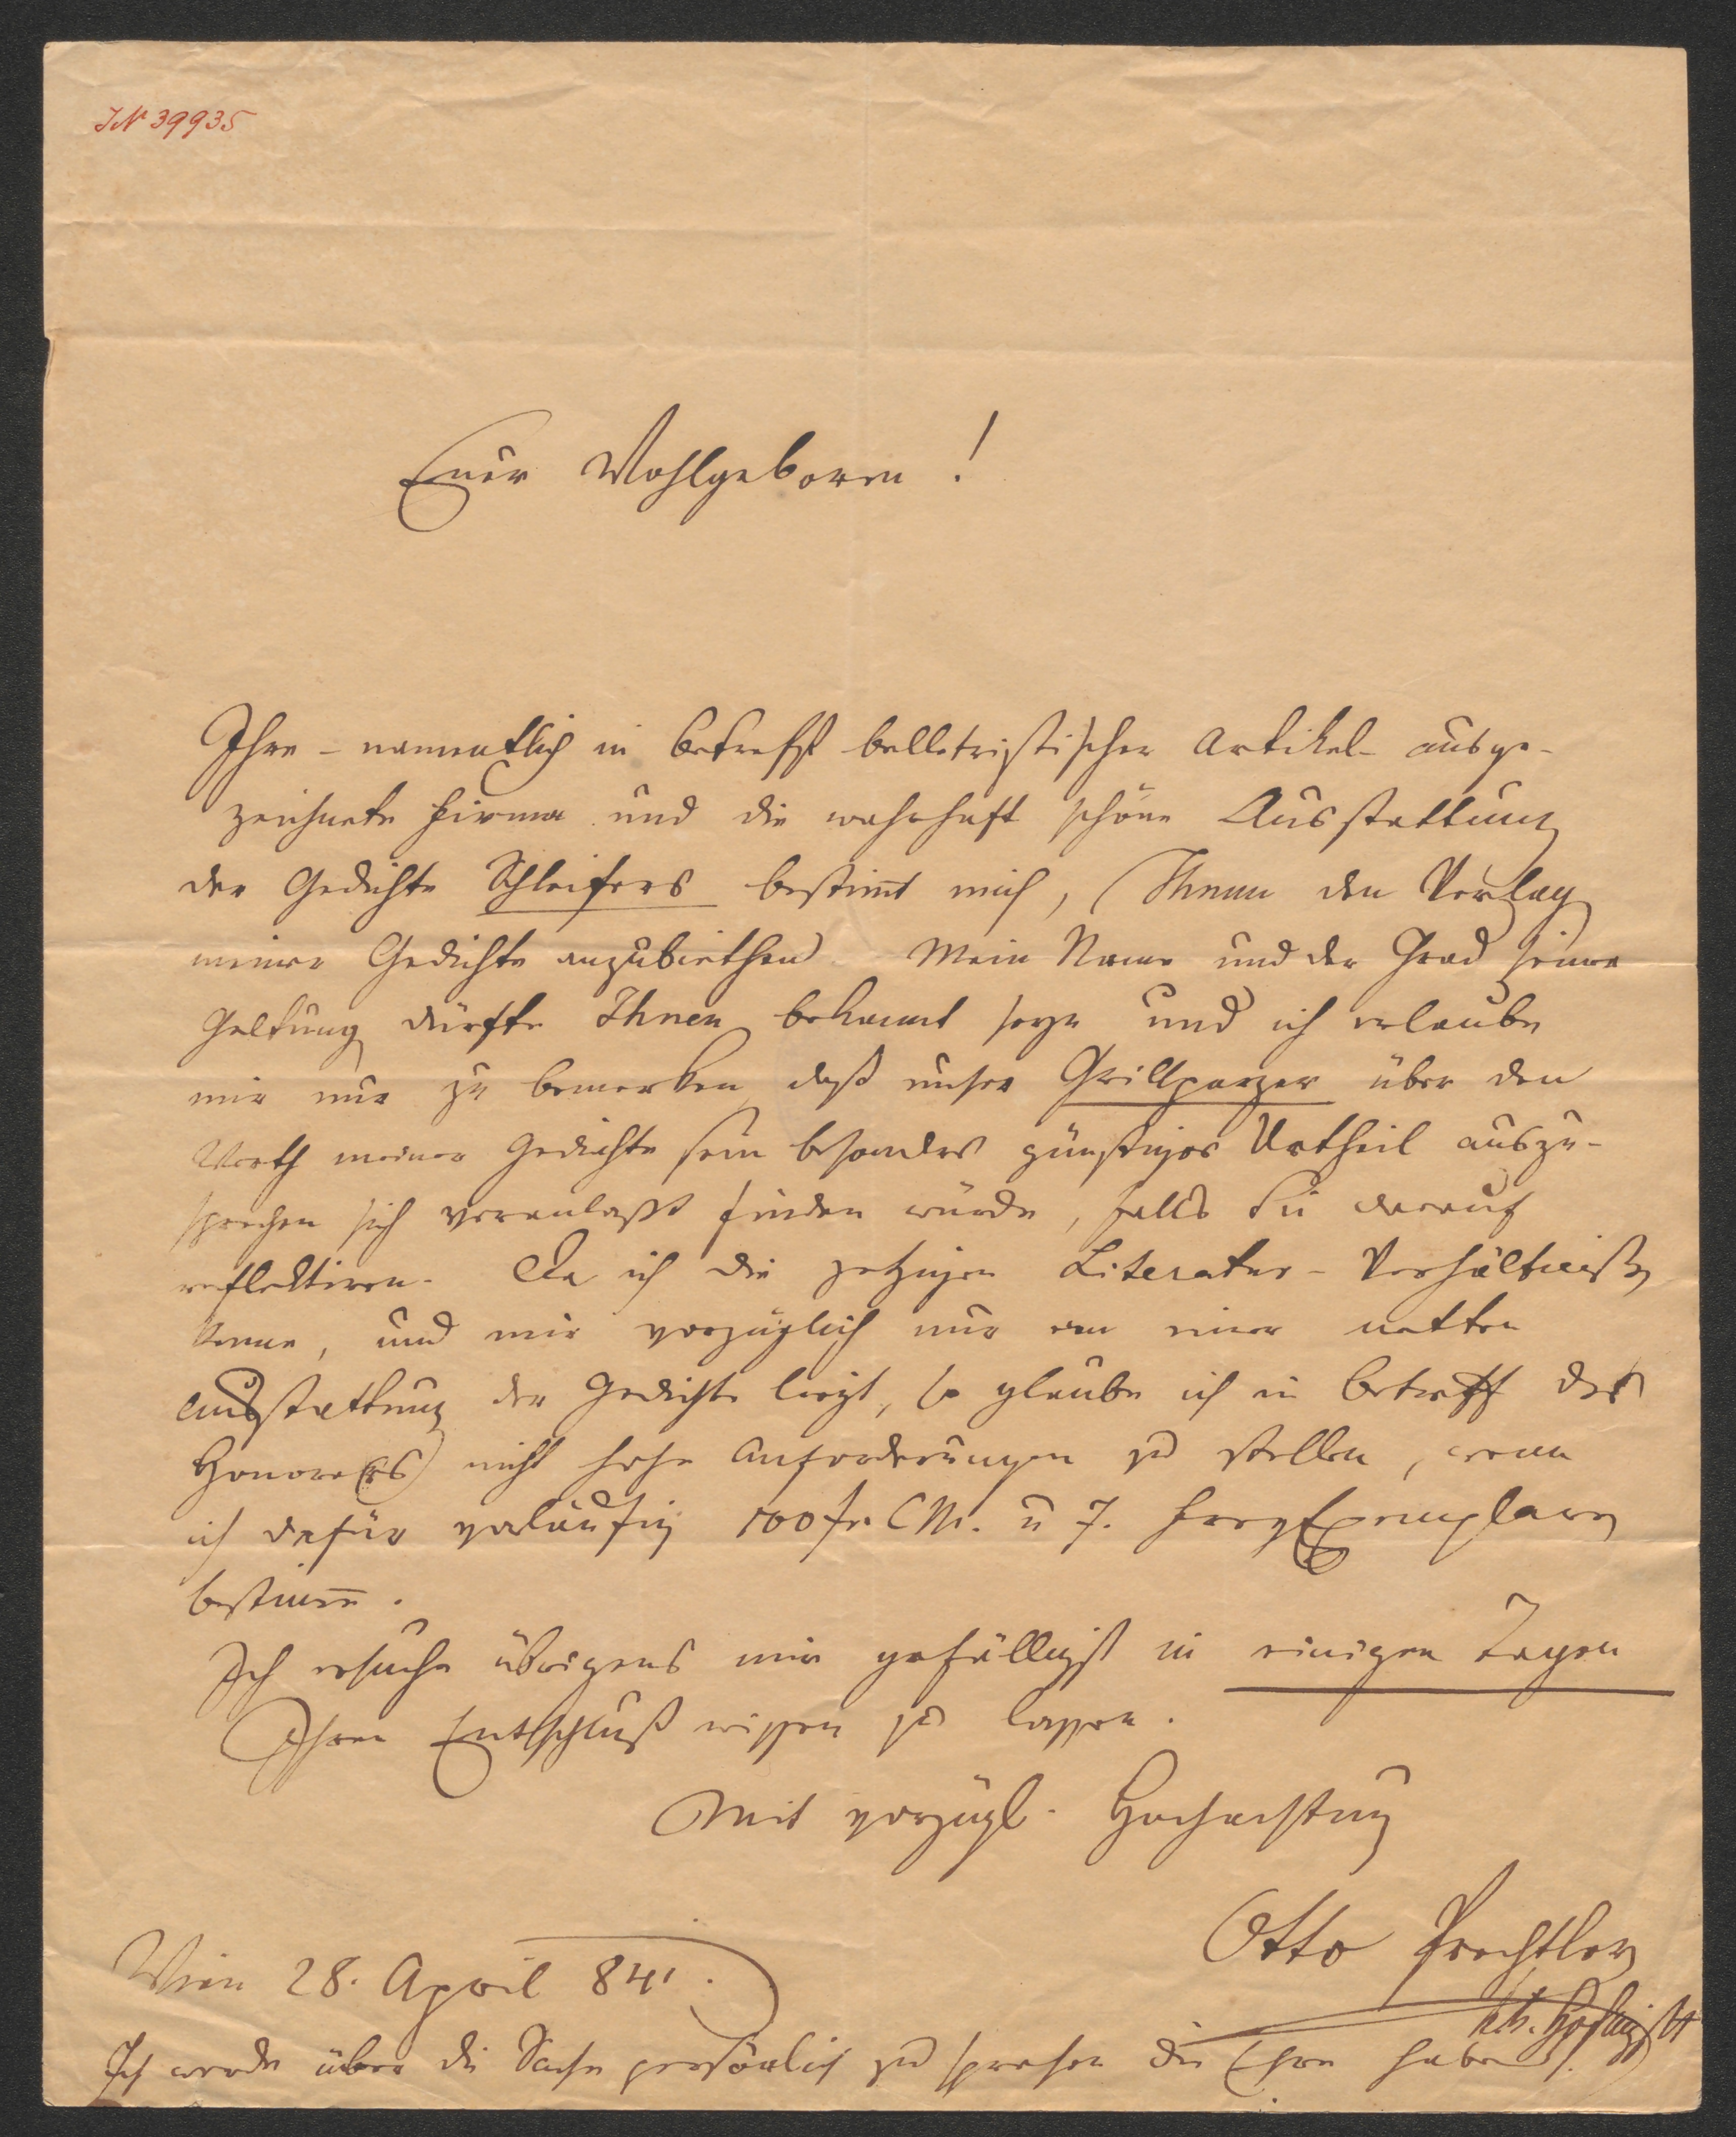 IN 39935
Euer Wohlgeboren!
Ihre – namentlich in betrefft belletristischer Artikel – ausge-
zeichnete Firma und die wahrhaft schöne Ausstattung
der Gedichte Schleifers bestimt mich, Ihnen den Verlag
meiner Gedichte anzubiethen. Mein Name und der Grad seiner
Geltung dürfte Ihnen bekannt seyn und ich erlaube
mir nur zu bemerken, daß unser Grillparzer über den
Werth meiner Gedichte sein besonders günstiges Urtheil auszu-
sprechen sich veranlaßt finden würde, falls Sie darauf
reflektiren. Da ich die jetzigen Literatur-Verhältniße
kenne, und mir vorzüglich nur an einer netten
Ausstattung der Gedichte liegt, so glaube ich in Betreff des
Honorars nicht hohe Anforderungen zu stellen, wenn
ich dafür vorläufig 100 fr. CM. u 7. Frey Exemplare
bestime.
Ich ersuche übrigens mir gefälligst in einigen Tagen
Ihren Entschluß wissen zu lassen.
Mit vorzügl. Hochachtung
Otto Prechtler
Wien 28. April 841.
Ich werde über die Sache persönlich zu sprechen die Ehre haben.